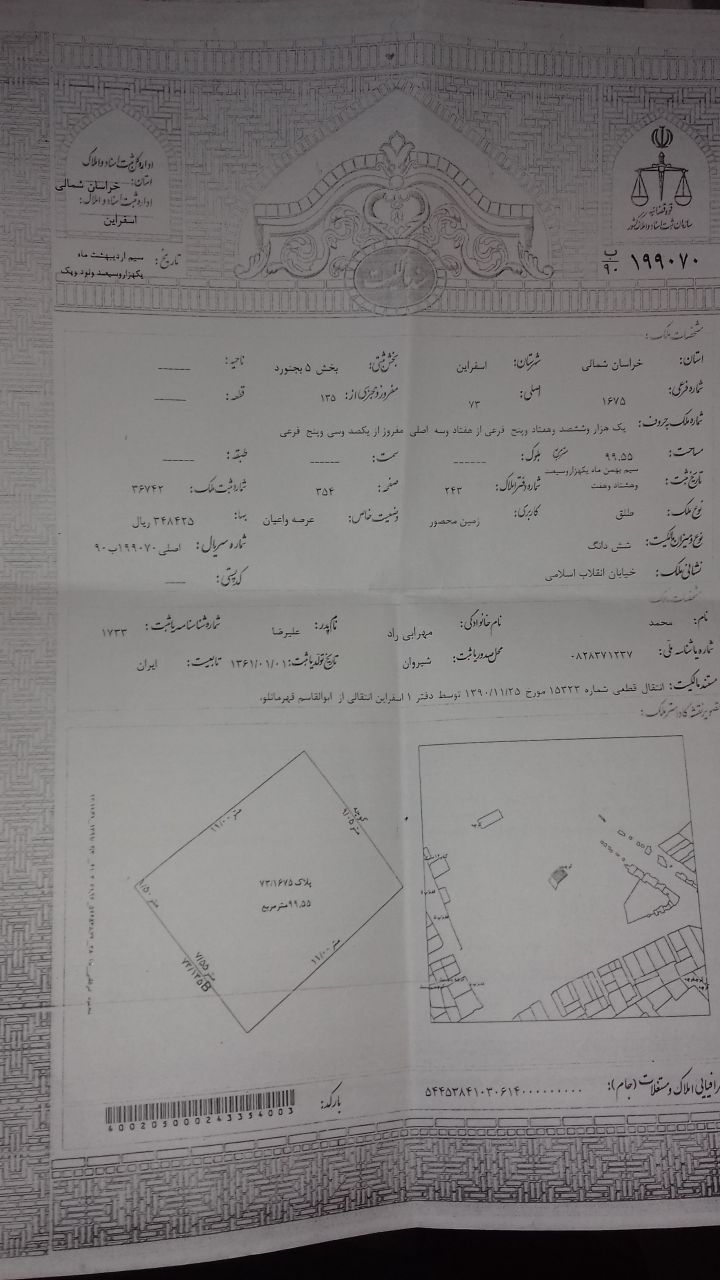 قوه قضائیه
سازمان ثبت اسناد و املاک کشور
۱۹۹۰۷۰ ب ۹۰
اداره کل ثبت اسناد و املاک
استان: خراسان شمالی
اداره ثبت اسناد و املاک:
اسفراین
تاریخ: سیم اردیبهشت ماه
یکهزاروسیصد ونود ویک
مشخصات ملک:
استان: خراسان شمالی شهرستان: اسفراین بخش ثبتی: بخش ۵ بجنورد ناحیه: ------
شماره فرعی: ۱۶۷۵ اصلی: ۷۳ مفروز و مجزی از: ۱۳۵ قطعه: ------
شماره ملک به حروف: یک هزار وششصد وهفتاد وپنج فرعی از هفتاد وسه اصلی مفروز از یکصد وسی وپنج فرعی
مساحت: ۹۹.۵۵ مترمربع بلوک: ------ سمت: ------ طبقه: ------
تاریخ ثبت: سیم بهمن ماه یکهزاروسیصد وهشتاد وهفت شماره دفتر املاک: ۲۴۳ صفحه: ۳۵۴ شماره ثبت ملک: ۳۶۷۴۲
نوع ملک: طلق کاربری: زمین محصور وضعیت خاص: عرصه واعیان بها: ۳۴۸۴۲۵ ریال
نوع و میزان مالکیت: شش دانگ شماره سریال: اصلی ۱۹۹۰۷۰ب۹۰
نشانی ملک: خیابان انقلاب اسلامی کد پستی: ----
نام: محمد نام خانوادگی: مهرابی راد نام پدر: علیرضا شماره شناسنامه یا ثبت: ۱۷۳۳
شماره یا شناسه ملی: ۰۸۲۸۳۷۱۲۳۷ محل صدور یا ثبت: شیروان تاریخ تولد یا ثبت: ۱۳۶۱/۰۱/۰۱ تابعیت: ایران
مستند مالکیت: انتقال قطعی شماره ۱۵۳۲۳ مورخ ۱۳۹۰/۱۱/۲۵ توسط دفتر ۱ اسفراین انتقالی از ابوالقاسم قهرمانلو،
تصویر نقشه کاداستر ملک:
۱۱/۰۰ متر
کوچه
۹/۰۵ متر
پلاک ۷۳/۱۶۷۵
۹۹.۵۵ مترمربع
۱/۵۰ متر
۷/۵۵ متر
۷۳/۱۳۵B
۱۱/۰۰ متر
رافیایی املاک و مستغلات (جام): ۵۴۴۵۳۸۴۱۰۳۰۶۱۴۰۰۰۰۰۰۰۰۰
بارکد:
400205000243354003